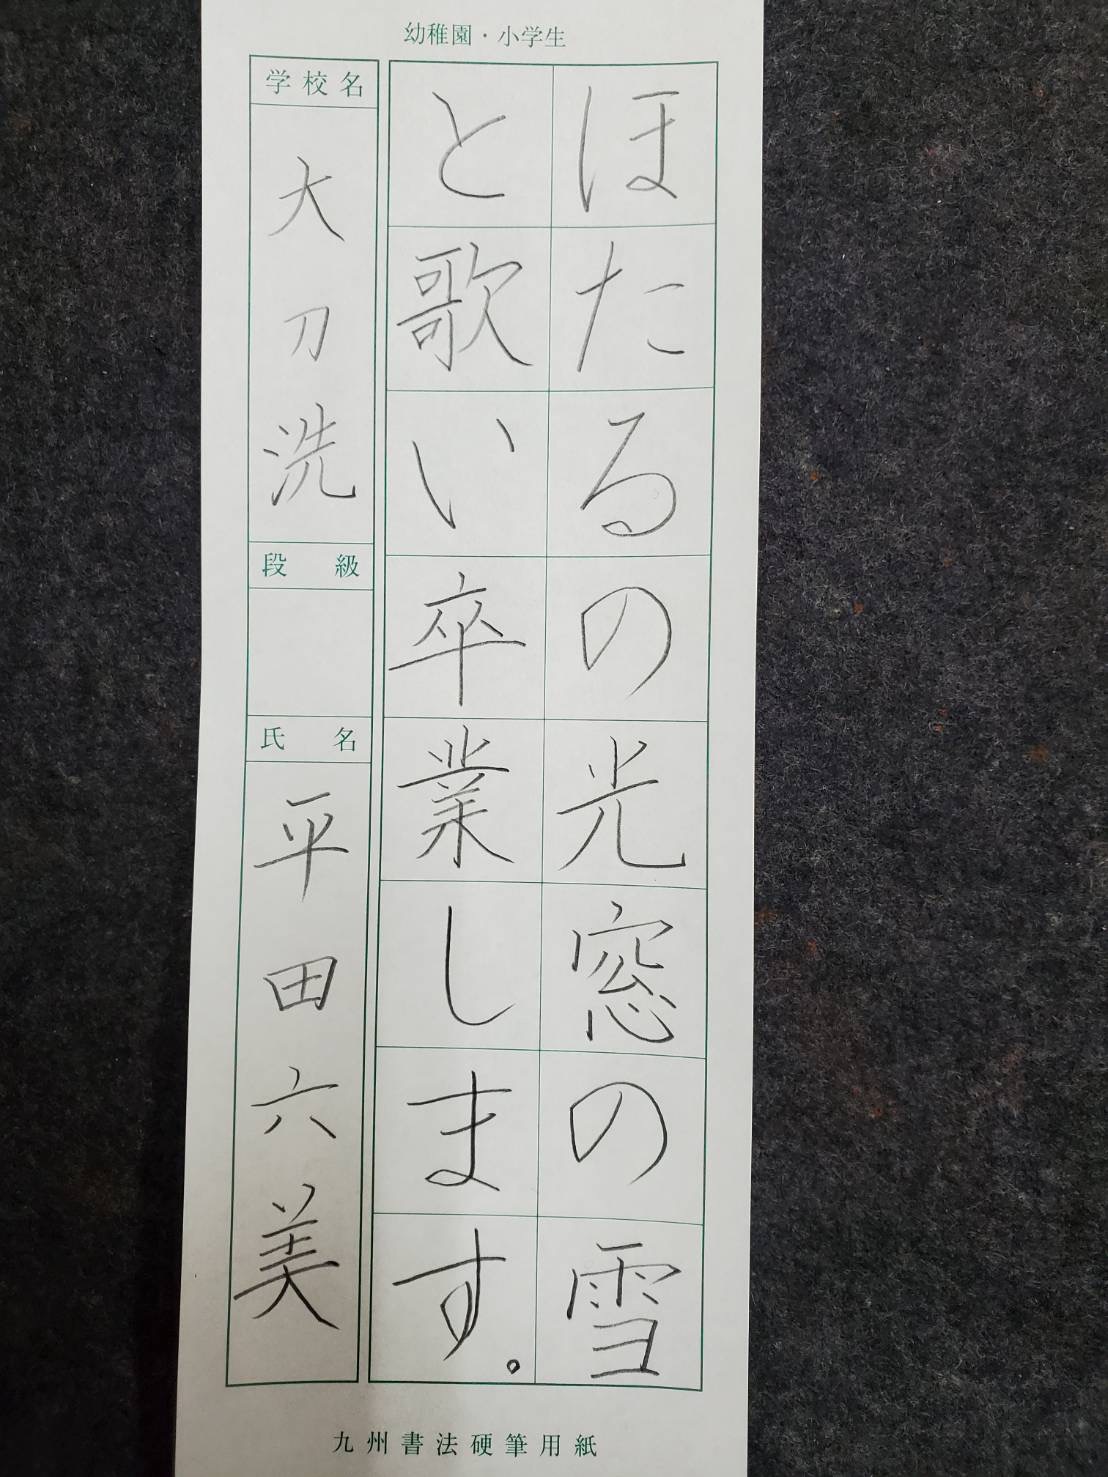 幼稚園・小学生
ほたるの光窓の雪
と歌い卒業します。
学校名
大刀洗
段級
氏名
平田六美
九州書法硬筆用紙